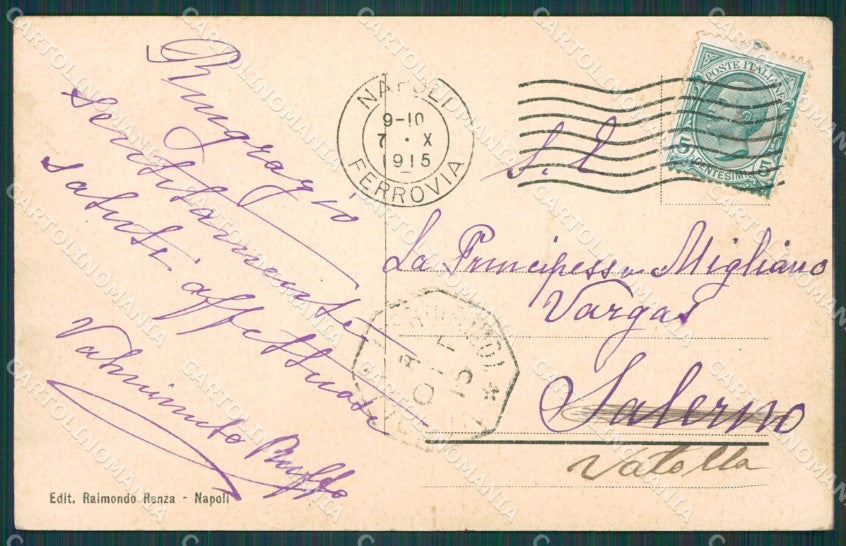 Ringrazio
sentitamente
saluti affettuosi
Ruffo
Edit. Raimondo Renza - Napoli
NAPOLI
9-10
7 · X
1915
FERROVIA
POSTE ITALIANE
5 CENTESIMI 5
S. E
La Principessa Migliano
Vargas
Salerno
Vatolla
CARTOLINOMANIA